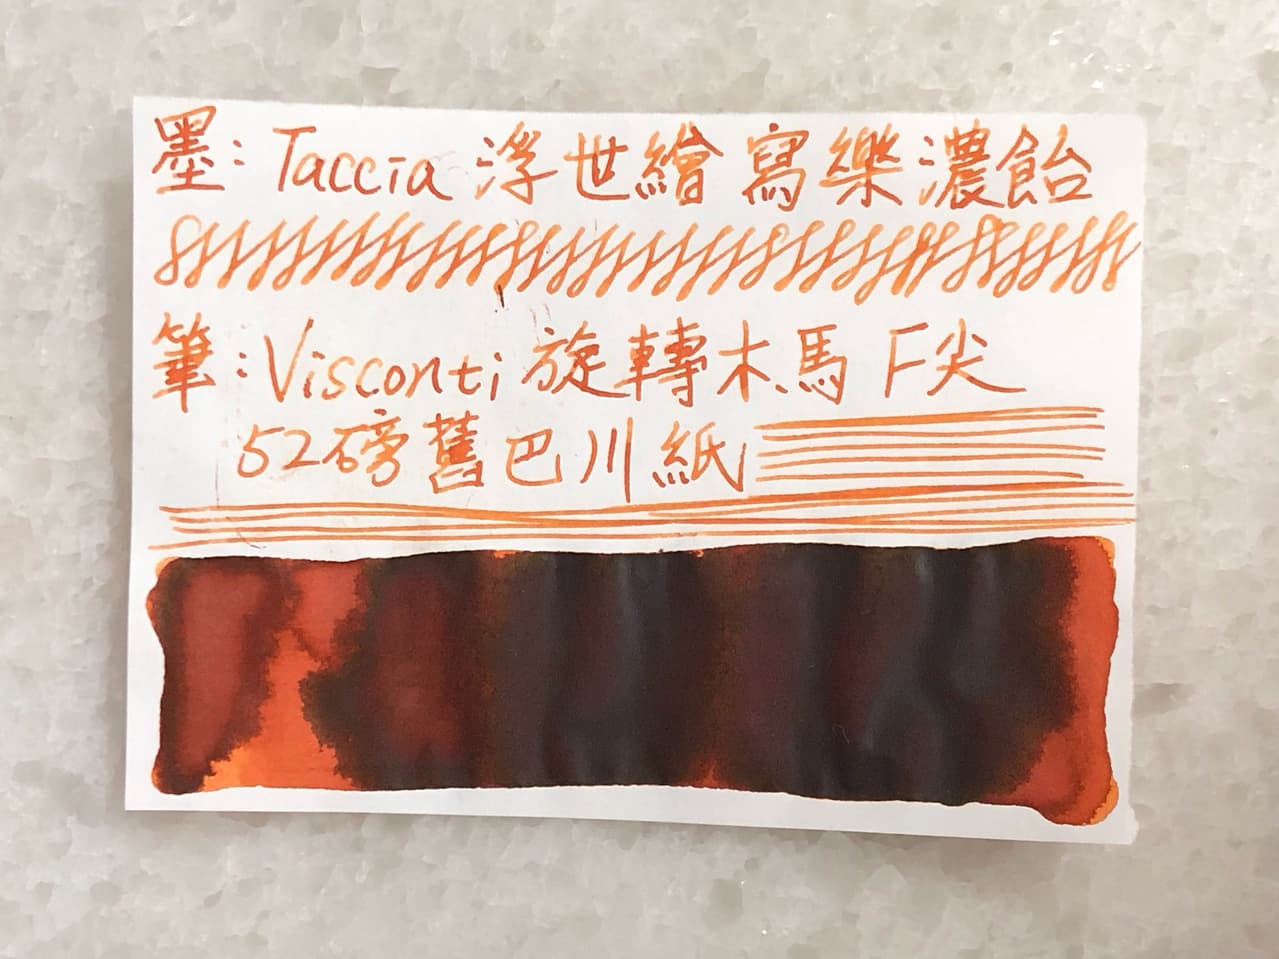 墨: Taccia 浮世繪 寫樂濃飴
筆: Visconti 旋轉木馬 F尖
52磅舊巴川紙